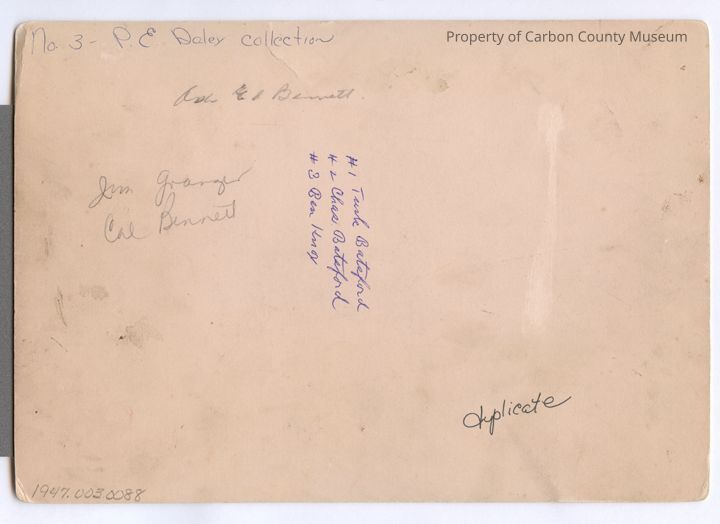 No. 3 - P. E. Daley collection
Property of Carbon County Museum
Ask Ed Bennett.
Jim Granger
Cal Bennett
#1 Turk Batsford
#2 Chas Batsford
#3 Ben Knox
duplicate
1947.003.0088